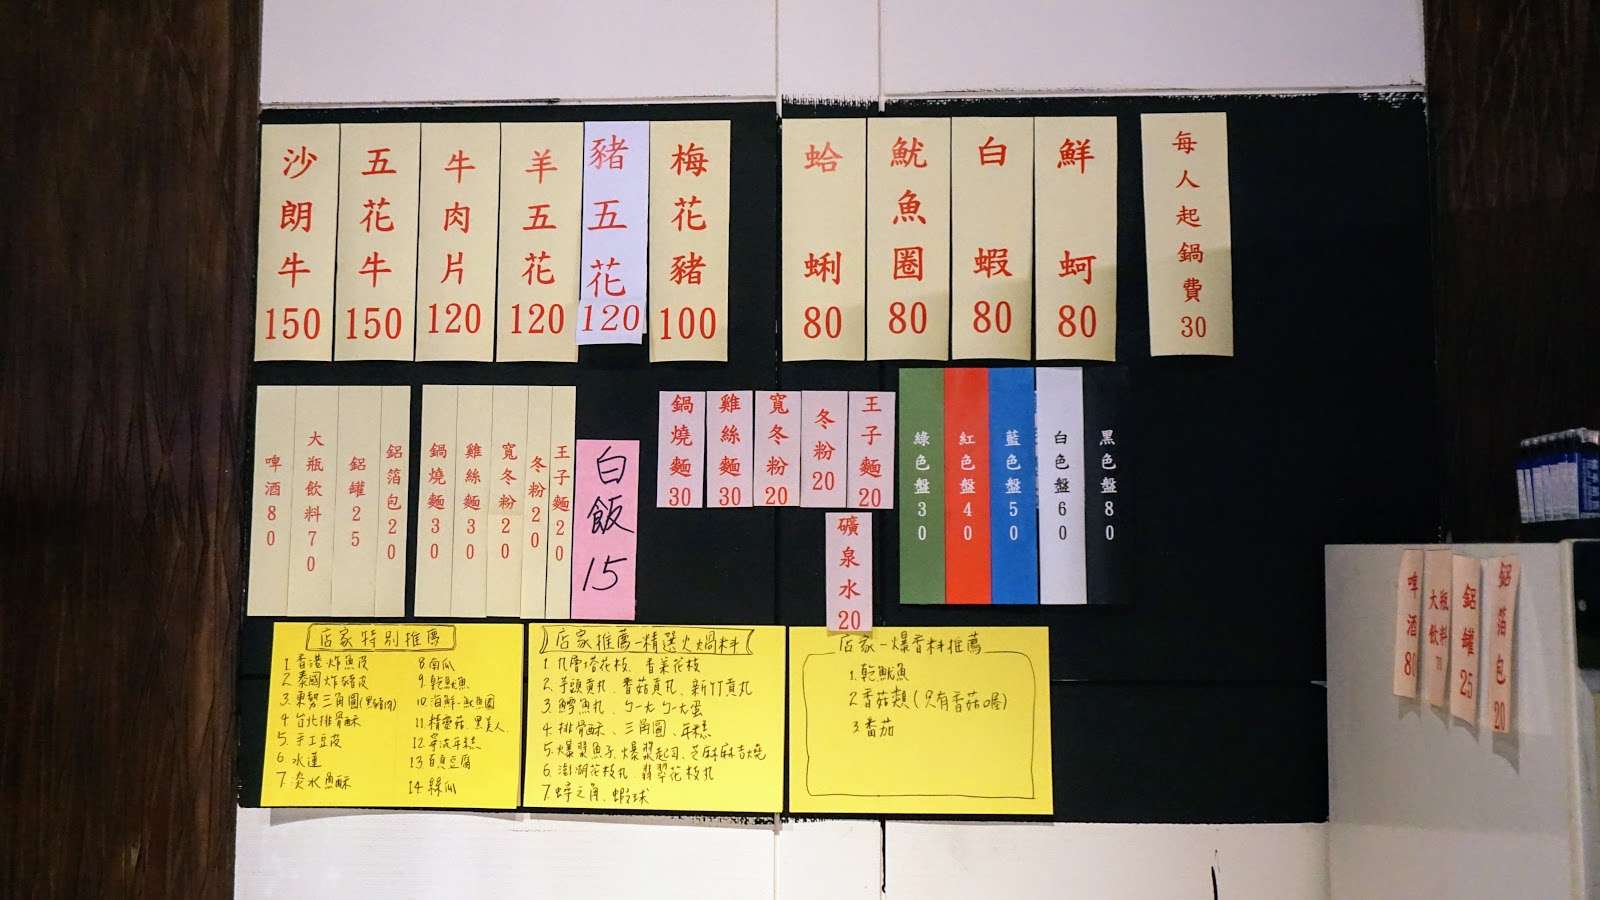 沙朗牛150
五花牛150
牛肉片120
羊五花120
豬五花120
梅花豬100
蛤蜊80
魷魚圈80
白蝦80
鮮蚵80
每人起鍋費30
啤酒80
大瓶飲料70
鋁罐25
鋁箔包20
鍋燒麵30
雞絲麵30
寬冬粉20
冬粉20
王子麵20
白飯15
鍋燒麵30
雞絲麵30
寬冬粉20
冬粉20
王子麵20
礦泉水20
綠色盤30
紅色盤40
藍色盤50
白色盤60
黑色盤80
店家特別推薦
1 香港炸魚皮
2 泰國炸豬皮
3. 東勢三角圓(黑豬肉)
4. 台北排骨酥
5. 手工豆皮
6 水蓮
7. 淡水魚酥
8. 南瓜
9. 乾魷魚
10. 海鮮-魷魚圈
11. 精靈菇.黑美人.
12. 寧波年糕
13 百頁豆腐
14. 絲瓜
店家推薦-精選火鍋料
1. 九層塔花枝、香菜花枝
2. 芋頭貢丸、香菇貢丸、新竹貢丸
3. 鱈魚丸、ㄅ一ㄤㄅ一ㄤ蛋
4. 排骨酥、三角圓、年糕
5. 爆漿魚子、爆漿起司、芝麻麻吉燒
6. 澎湖花枝丸、翡翠花枝丸
7. 蝦球
店家-爆香料推薦
1. 乾魷魚
2 香菇類(只有香菇喔)
3. 番茄
啤酒80
大瓶飲料70
鋁罐25
鋁箔包20